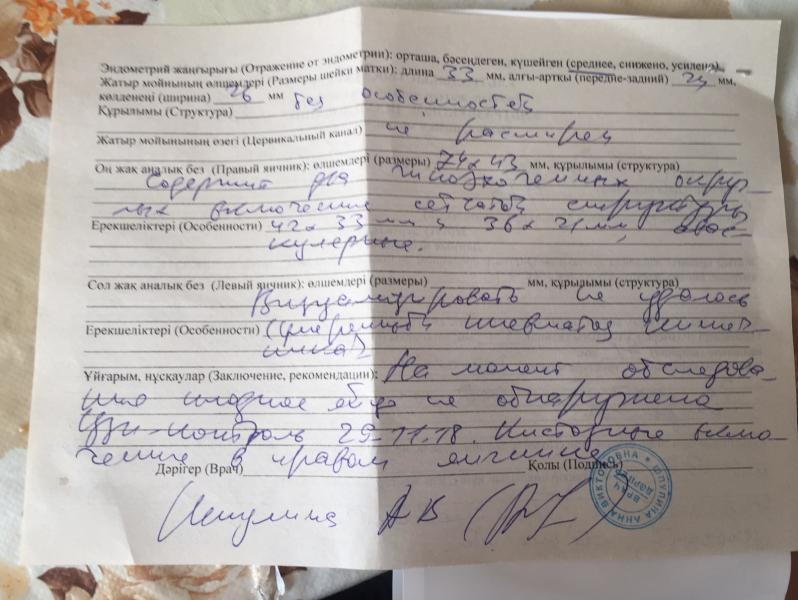 Эндометрий жаңғырығы (Отражение от эндометрии): орташа, бәсеңдеген, күшейген (среднее, снижено, усилена),
Жатыр мойнының өлшемдері (Размеры шейки матки): длина 33 мм, алғы-артқы (передне-задний) мм,
көлденеңі (ширина) мм без особенностей
Құрылымы (Структура)
Жатыр мойынының өзегі (Цервикальный канал) не расширен
Оң жақ аналық без (Правый яичник): өлшемдері (размеры) 74х43 мм, құрылымы (структура)
Содержит два гипоэхогенных округ-
лых включения сетчатой структуры
Ерекшеліктері (Особенности) 42х33 мм, 36х мм, авас-
кулярные.
Сол жақ аналық без (Левый яичник): өлшемдері (размеры) мм, құрылымы (структура)
Визуализировать не удалось
Ерекшеліктері (Особенности) пневматоз кишеч-
ника
Ұйғарым, нұсқаулар (Заключение, рекомендации): На момент обследова-
ния плодное яйцо не обнаружено
УЗИ-контроль 29.11.18. Кистозные вклю-
чения в правом яичнике
Дәрігер (Врач) Қолы (Подпись)
Шпулина А В
ШПУЛИНА АННА ВИКТОРОВНА
ВРАЧ
ДӘРІГЕР